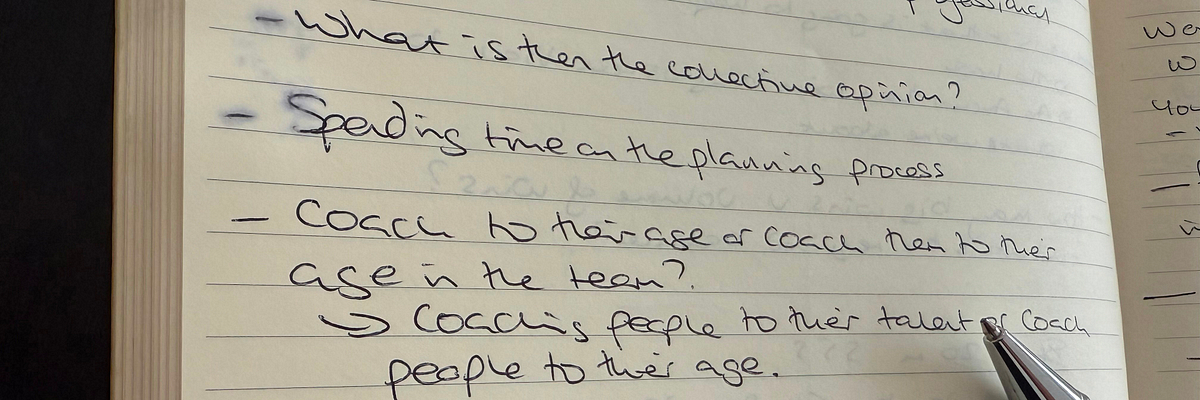 Professional
- What is then the collective opinion?
- Spending time on the planning process
- Coach to their age or coach them to their
age in the team?
→ Coaching people to their talent or coach
people to their age.